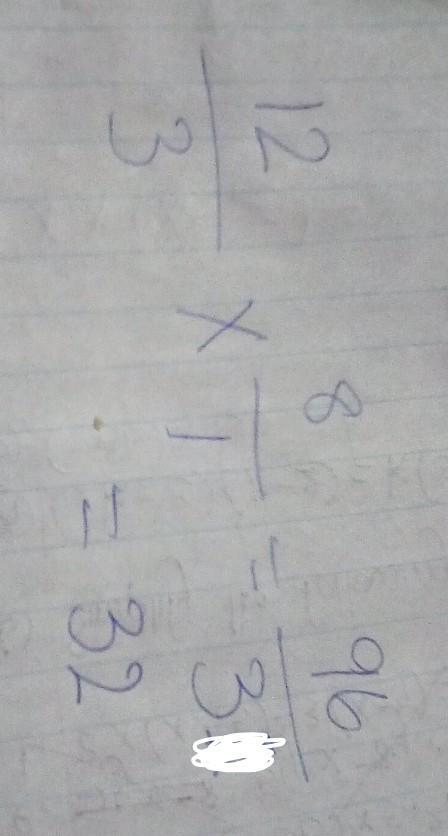 12/3 × 8/1 = 96/3
= 32